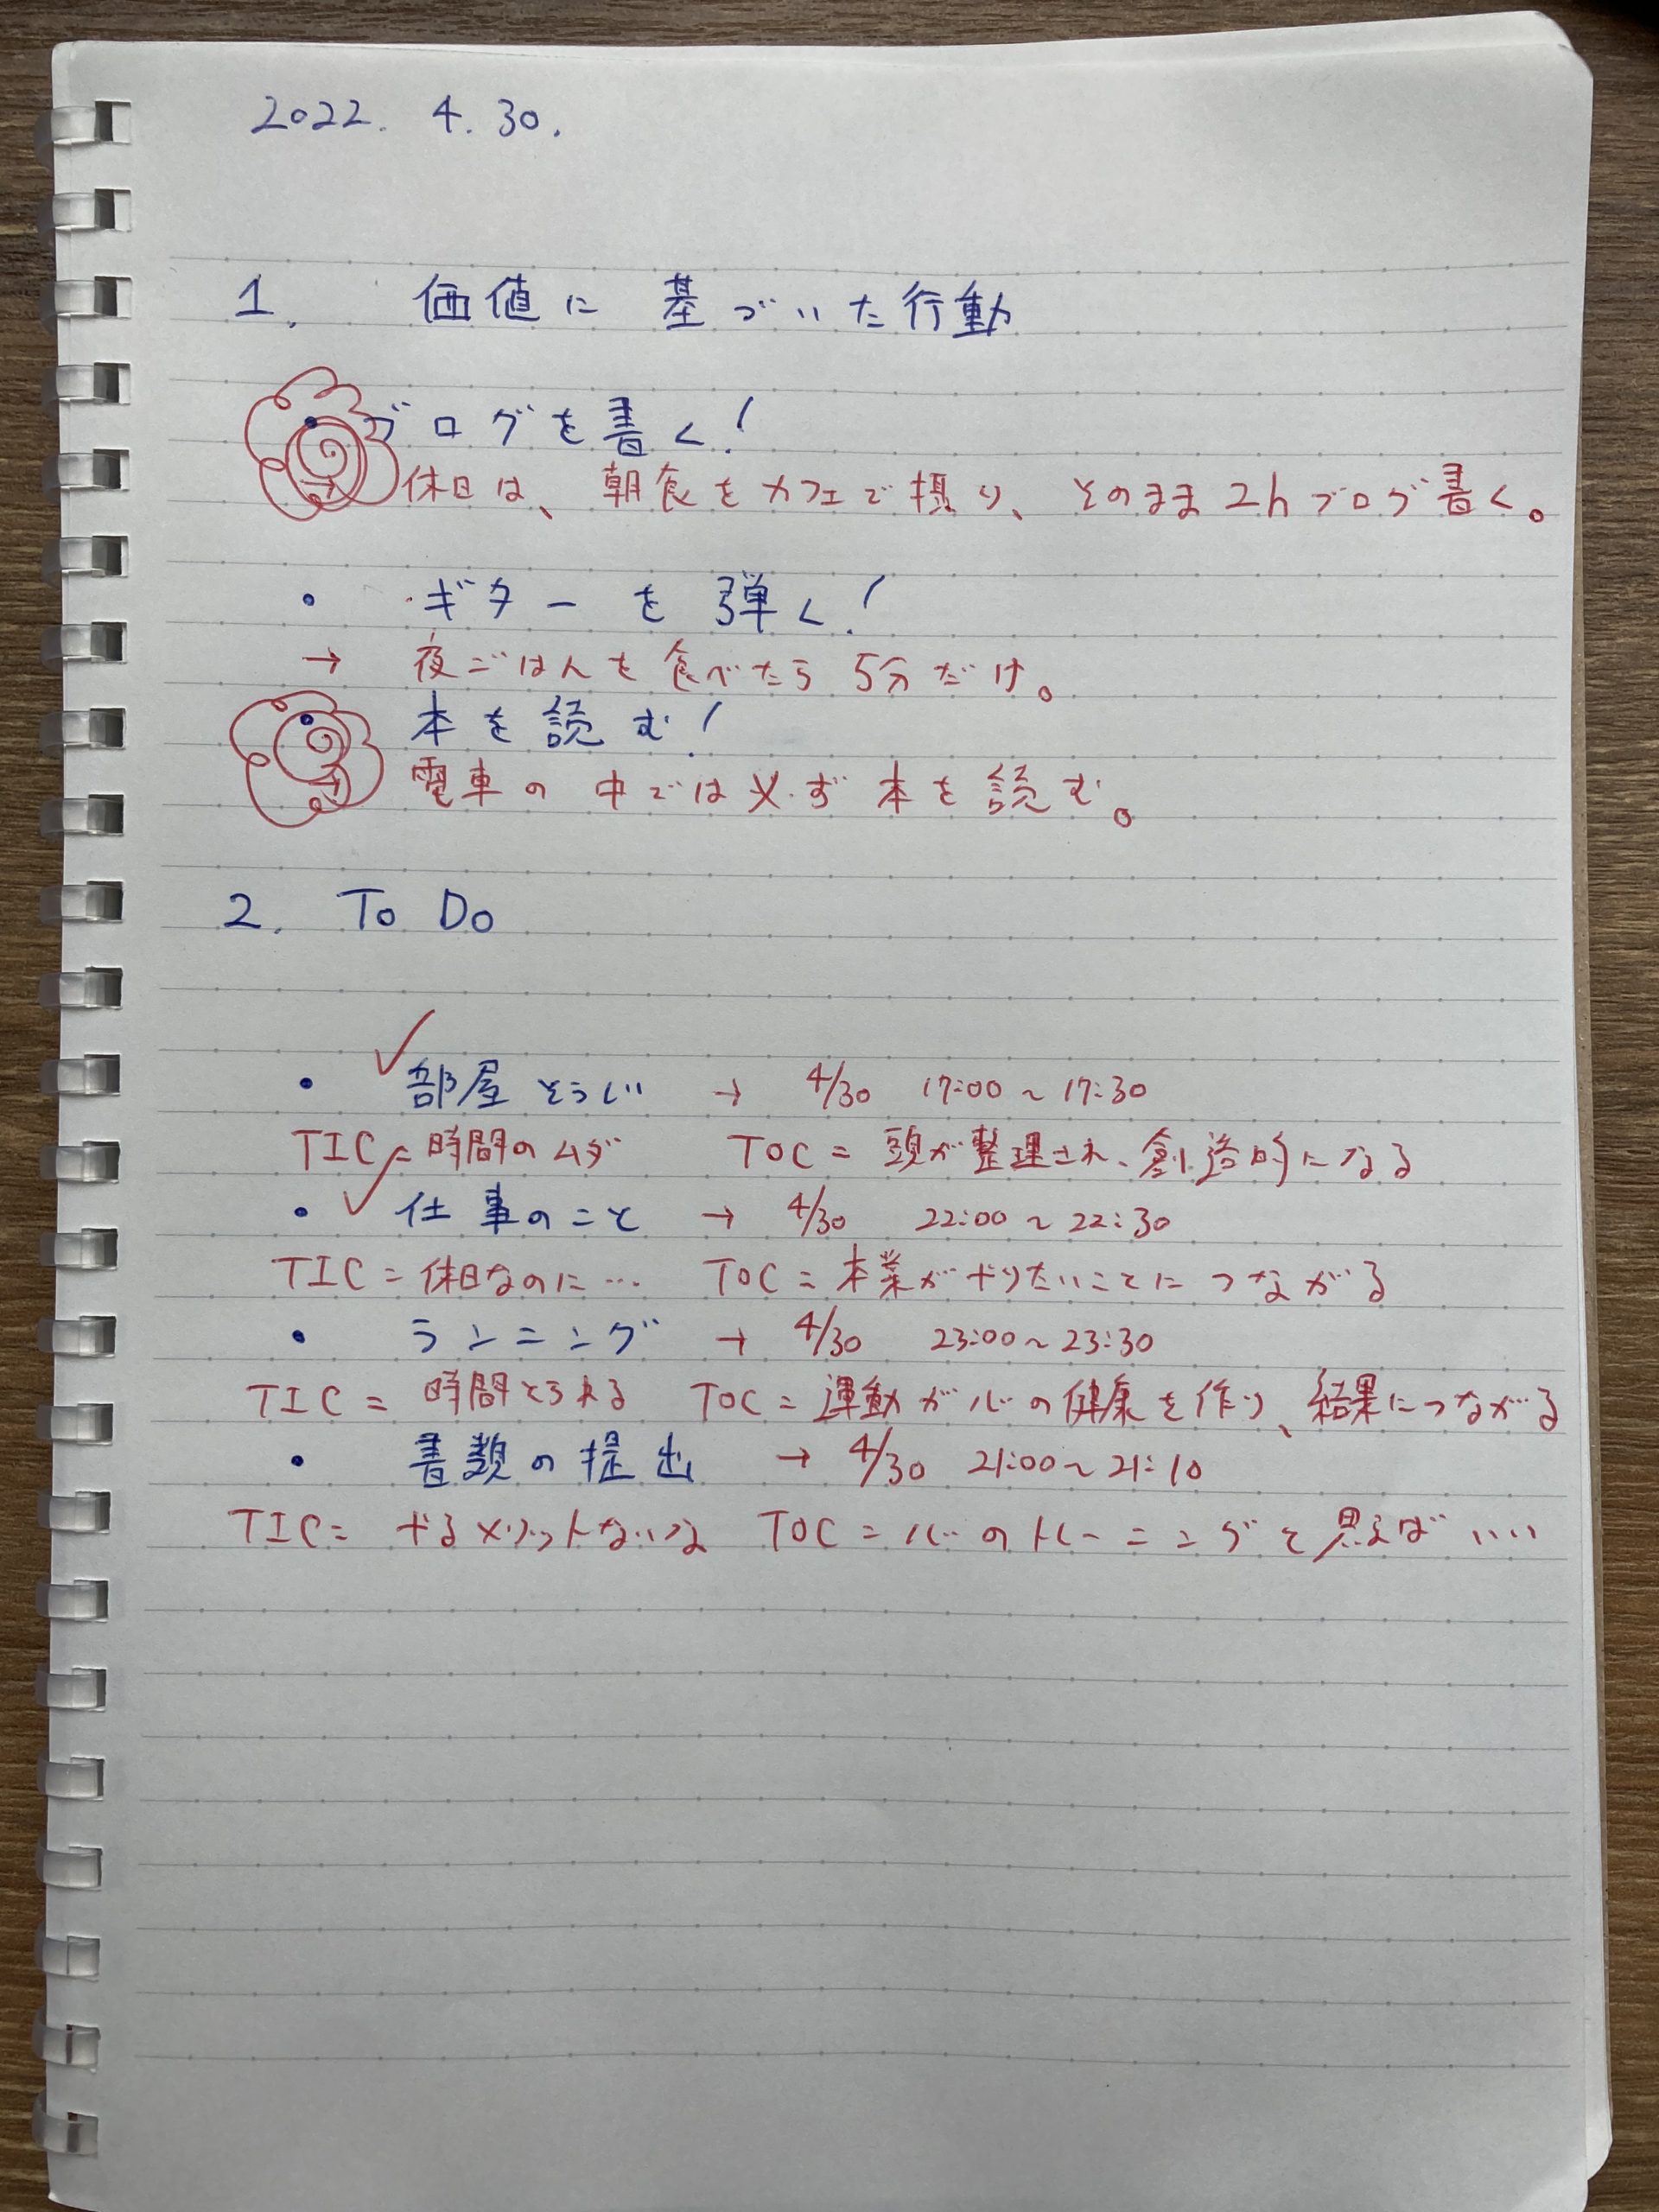 2022. 4. 30.
1. 価値に基づいた行動
・ ブログを書く!
→ 休日は、朝食をカフェで摂り、そのまま2hブログ書く。
・ ギターを弾く!
→ 夜ごはんを食べたら5分だけ。
・ 本を読む!
→ 電車の中では必ず本を読む。
2. To Do
・ ✓ 部屋そうじ → 4/30 17:00~17:30
TIC=時間のムダ TOC=頭が整理され、創造的になる
・ ✓ 仕事のこと → 4/30 22:00~22:30
TIC=休日なのに… TOC=本業がやりたいことにつながる
・ ランニング → 4/30 23:00~23:30
TIC=時間とられる TOC=運動が心の健康を作り、結果につながる
・ 書類の提出 → 4/30 21:00~21:10
TIC=やるメリットないな TOC=心のトレーニングと思えばいい